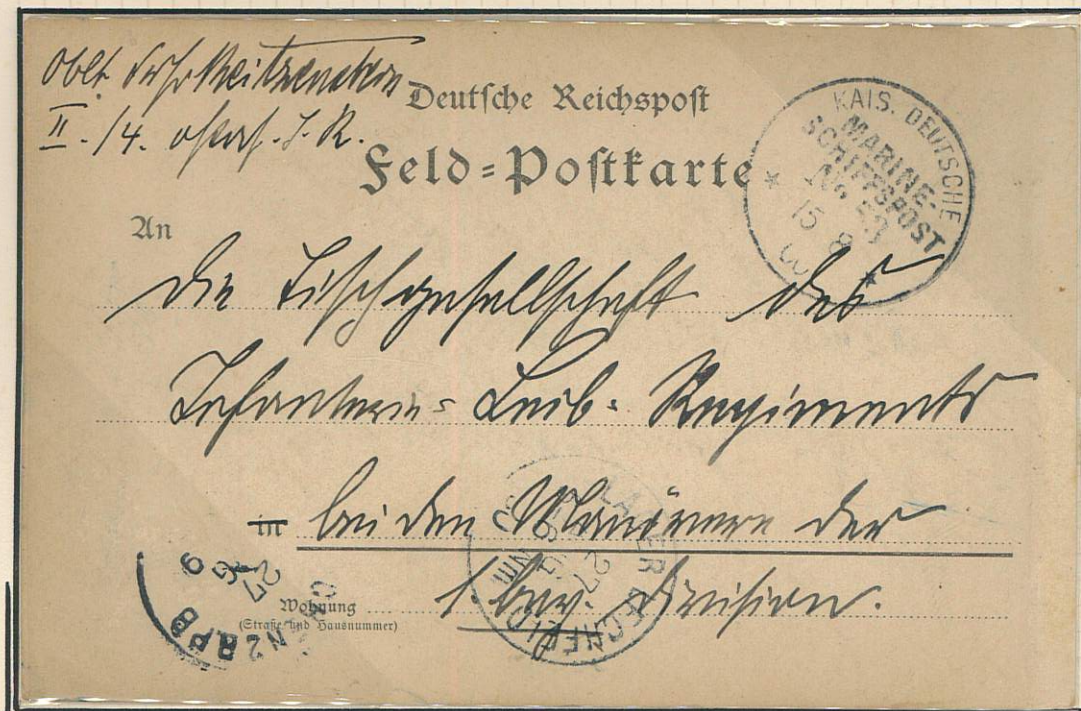 Oblt. Frhr. Reitzenstein
II./4. ostas. I.R.
Deutsche Reichspost
Feld=Postkarte
KAIS. DEUTSCHE
MARINE-
SCHIFFSPOST
No 53
15 8
An
die Tischgesellschaft des
Infanterie= Leib= Regiments
in bei den Manövern der
1. bay. Division.
Wohnung
(Straße und Hausnummer)
LAGER LECHFELD
27
27